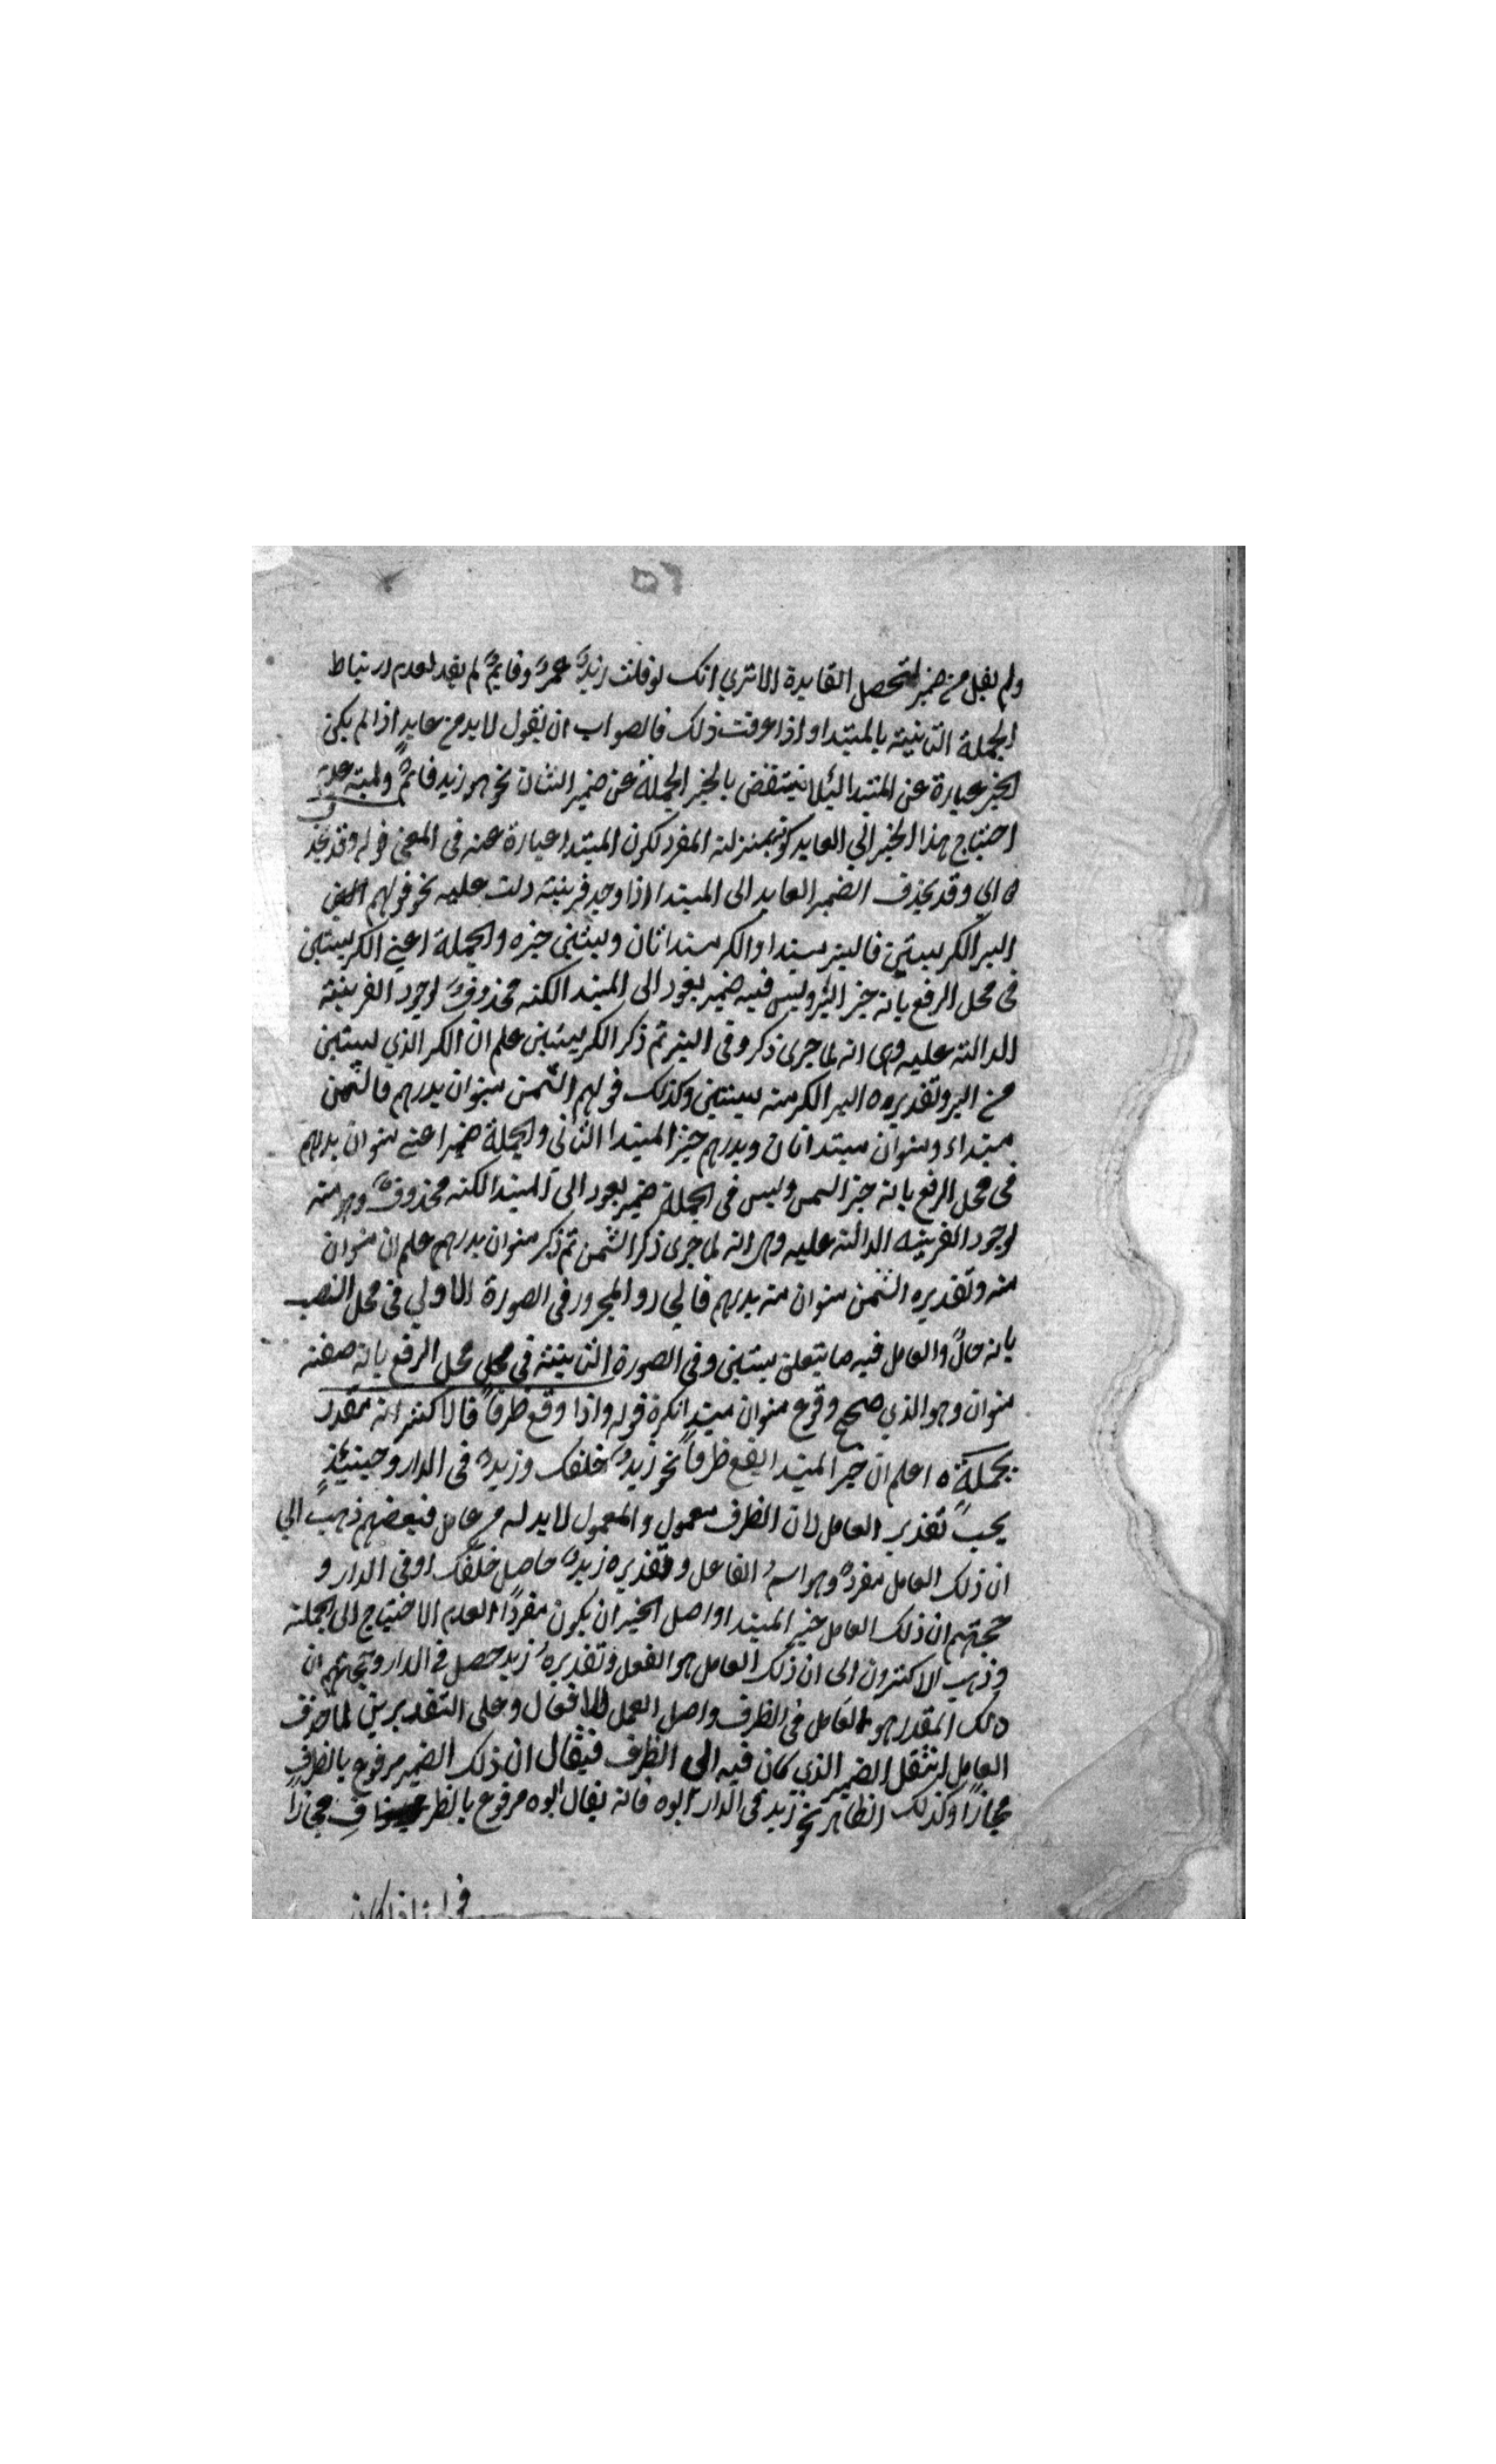 ولم يقل من ضمير لتحصل الفايدة الا تري انك لو قلت زيدٌ عمروٌ وقايمٌ لم يفد لعدم ارتباط
الجملة الثانية بالمبتدا واذا عرفت ذلك فالصواب ان يقول لابد من عايدٍ اذا لم يكن
الخبر عبارة عن المبتدا لئلا ينتقض بالخبر الجملة عن ضمير الشان نحو هو زيد قائمٌ
احتياج هذا الخبر الي العايد كونه بمنزلة المفرد لكون المبتدا عبارة عنه في المعني قوله وقد يحذ
ه اي وقد يحذف الضمير العايد الى المبتدا اذا وجد قرينة دلت عليه نحو قولهم
البر الكر بستين فالبر مبتدا والكر مبتدا ثان وبستين خبره والجملة اعني الكر بستين
في محل الرفع بانه خبر البر وليس فيه ضمير يعود الى المبتدا لكنه محذوفٌ لوجود القرينة
الدالة عليه وهي انه لما جرى ذكر وفي البر ثم ذكر الكر بستين علم ان الكر الذي بستين
من البر وتقديره البر الكر منه بستين وكذلك قولهم السمن منوان بدرهم فالسمن
مبتداء ومنوان مبتدا ثان وبدرهم خبر المبتدا الثاني والجملة ضمير اعني منوان بدرهم
في محل الرفع بانه خبر السمن وليس في الجملة ضمير يعود الى المبتدا لكنه محذوفٌ وهو منه
لوجود القرينه الدالة عليه وهي انه لما جرى ذكر السمن ثم ذكر منوان بدرهم علم ان منوان
منه وتقديره السمن منوان منه بدرهم فالجار والمجرور في الصورة الاولي في محل النصب
بانه حالٌ والعامل فيه ما يتعلق بستين وفي الصورة الثانية في محل محل الرفع بانه صفة
منوان وهو الذي صحح وقوع منوان مبتدا نكرة قوله واذا وقع ظرفاً فالاكثر انه مقدر
بجملةٍ ه اعلم ان خبر المبتدا يقع ظرفاً نحو زيدٌ خلفك وزيدٌ في الدار وحينئذٍ
يجب تقدير العامل لان الظرف معمول والمعمول لابد له من عامل فبعضهم ذهب الي
ان ذلك العامل مفردٌ وهو اسم الفاعل وتقديره زيدٌ حاصل خلفك او في الدار و
حجتهم ان ذلك العامل خبر المبتدا واصل الخبر ان يكون مفرداً لعدم الاحتياج الى الجملة
وذهب الاكثرون الى ان ذلك العامل هو الفعل وتقديره زيد حصل في الدار وحجتهم ان
ذلك المقدر هو العامل في الظرف واصل العمل للافعال وعلى التقديرين لما حذف
العامل انتقل الضمير الذي كان فيه الى الظرف فيقال ان ذلك الضمير مرفوع بالظرف
مجازاً وكذلك الظاهر نحو زيد في الدار ابوه فانه يقال ابوه مرفوع بالظرف مجازاً